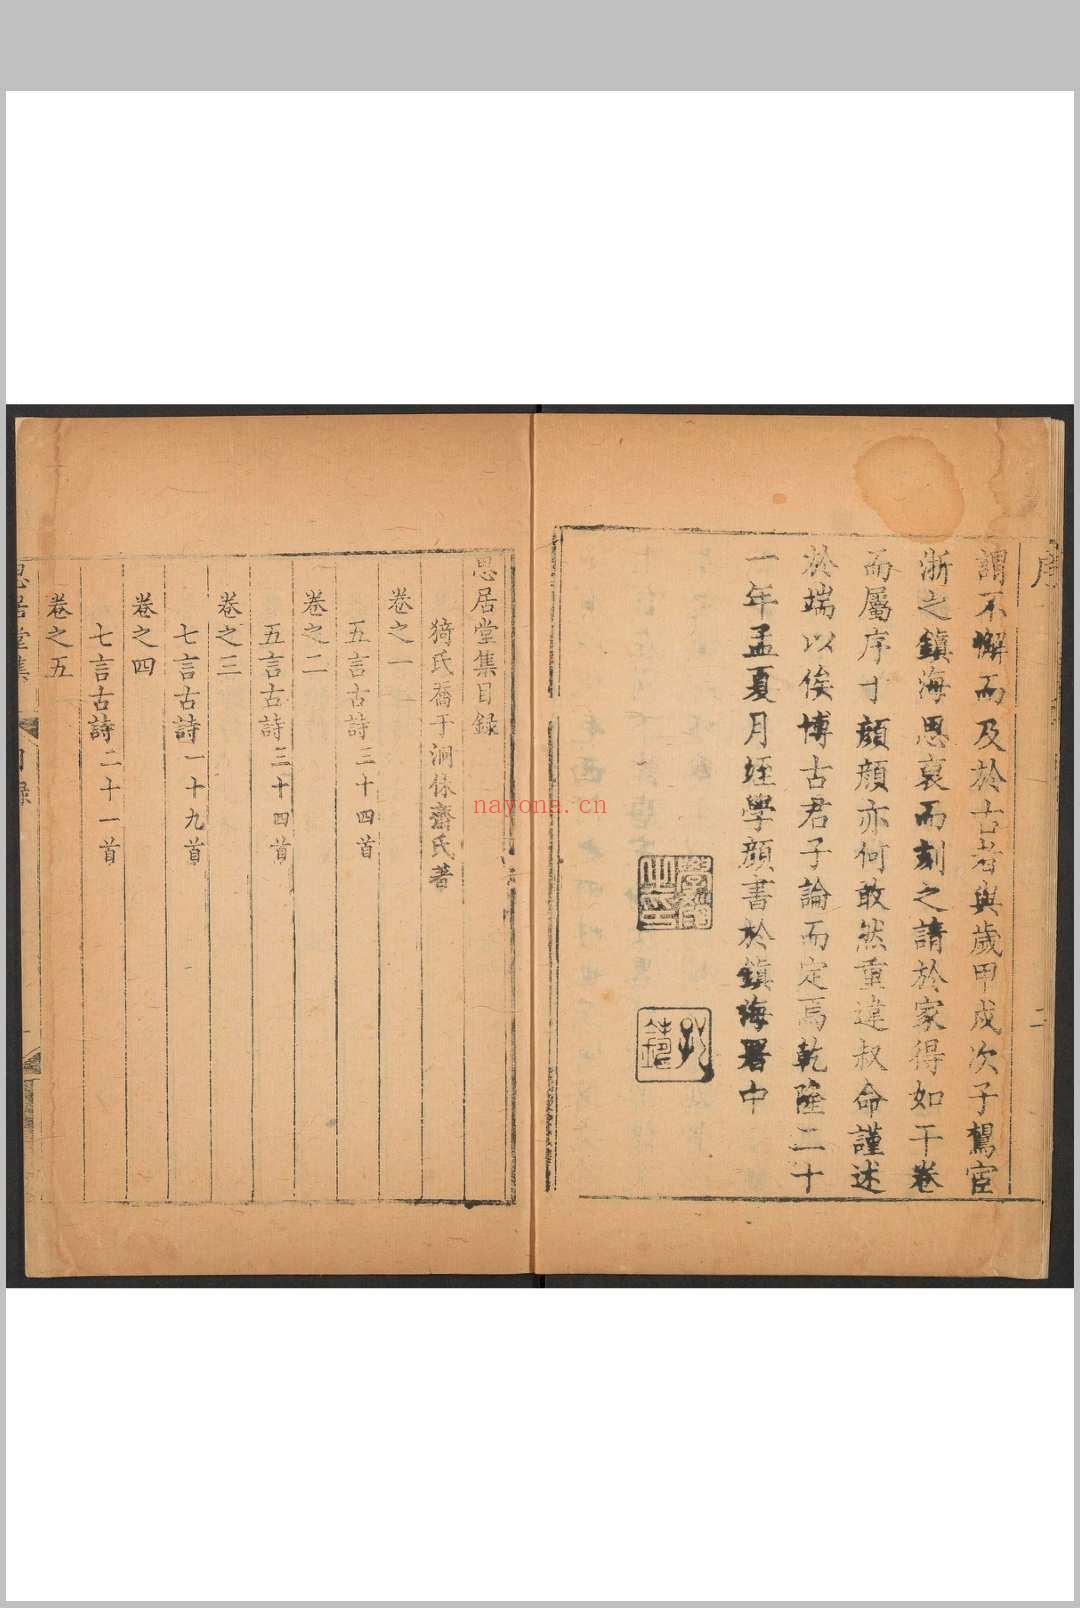 序
二
謂不懈而及於古者與歲甲戌次子鴛宦
浙之鎮海思裒而刻之請於家得如干卷
而屬序于顔顔亦何敢然重違叔命謹述
於端以俟博古君子論而定焉乾隆二十
一年孟夏月姪學顔書於鎮海署中
思居堂集目録
猗氏喬于泂休齋氏著
卷之一
五言古詩三十四首
卷之二
五言古詩三十四首
卷之三
七言古詩一十九首
卷之四
七言古詩二十一首
卷之五
思居堂集
目録
一
nayona.cn